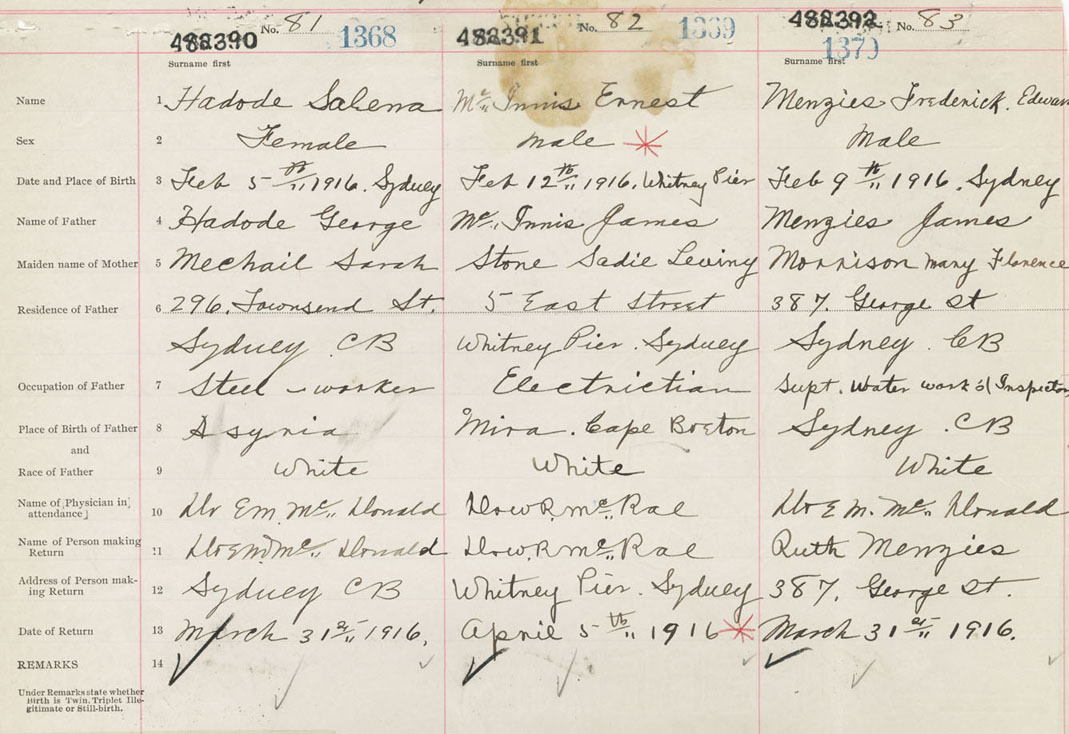 No. 81 No. 82 No. 83
482390 1368 482391 1369 482392 1370
Surname first Surname first Surname first
Name 1 Hadode Salema Mc Innis Ernest Menzies Frederick. Edwar
Sex 2 Female male Male
Date and Place of Birth 3 Feb 5th 1916. Sydney Feb 12th 1916. Whitney Pier Feb 9th 1916. Sydney
Name of Father 4 Hadode George Mc Innis James Menzies James
Maiden name of Mother 5 Mechail Sarah Stone Sadie Leviny Morrison Mary Florence
Residence of Father 6 296. Townsend St. 5 East Street 387. George St
Sydney CB Whitney Pier. Sydney Sydney. CB
Occupation of Father 7 Steel-worker Electrictian Supt. Water work's (Inspector
Place of Birth of Father 8 Asyria Mira. Cape Breton Sydney. CB
and
Race of Father 9 White White White
Name of [Physician in 10 Dr E m. Mc Donald Dr W. R. Mc Rae Dr E m. Mc Donald
attendance]
Name of Person making 11 Dr E m. Mc Donald Dr W. R Mc Rae Ruth Menzies
Return
Address of Person mak- 12 Sydney CB Whitney Pier. Sydney 387. George St.
ing Return
Date of Return 13 March 31st 1916. April 5th 1916 March 31st 1916.
REMARKS 14
Under Remarks state whether
Birth is Twin, Triplet Ille-
gitimate or Still-birth.